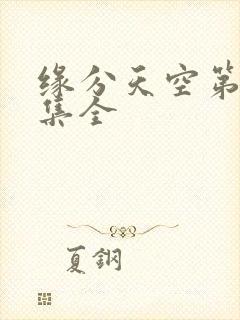 缘分天空第
集全
夏鋼